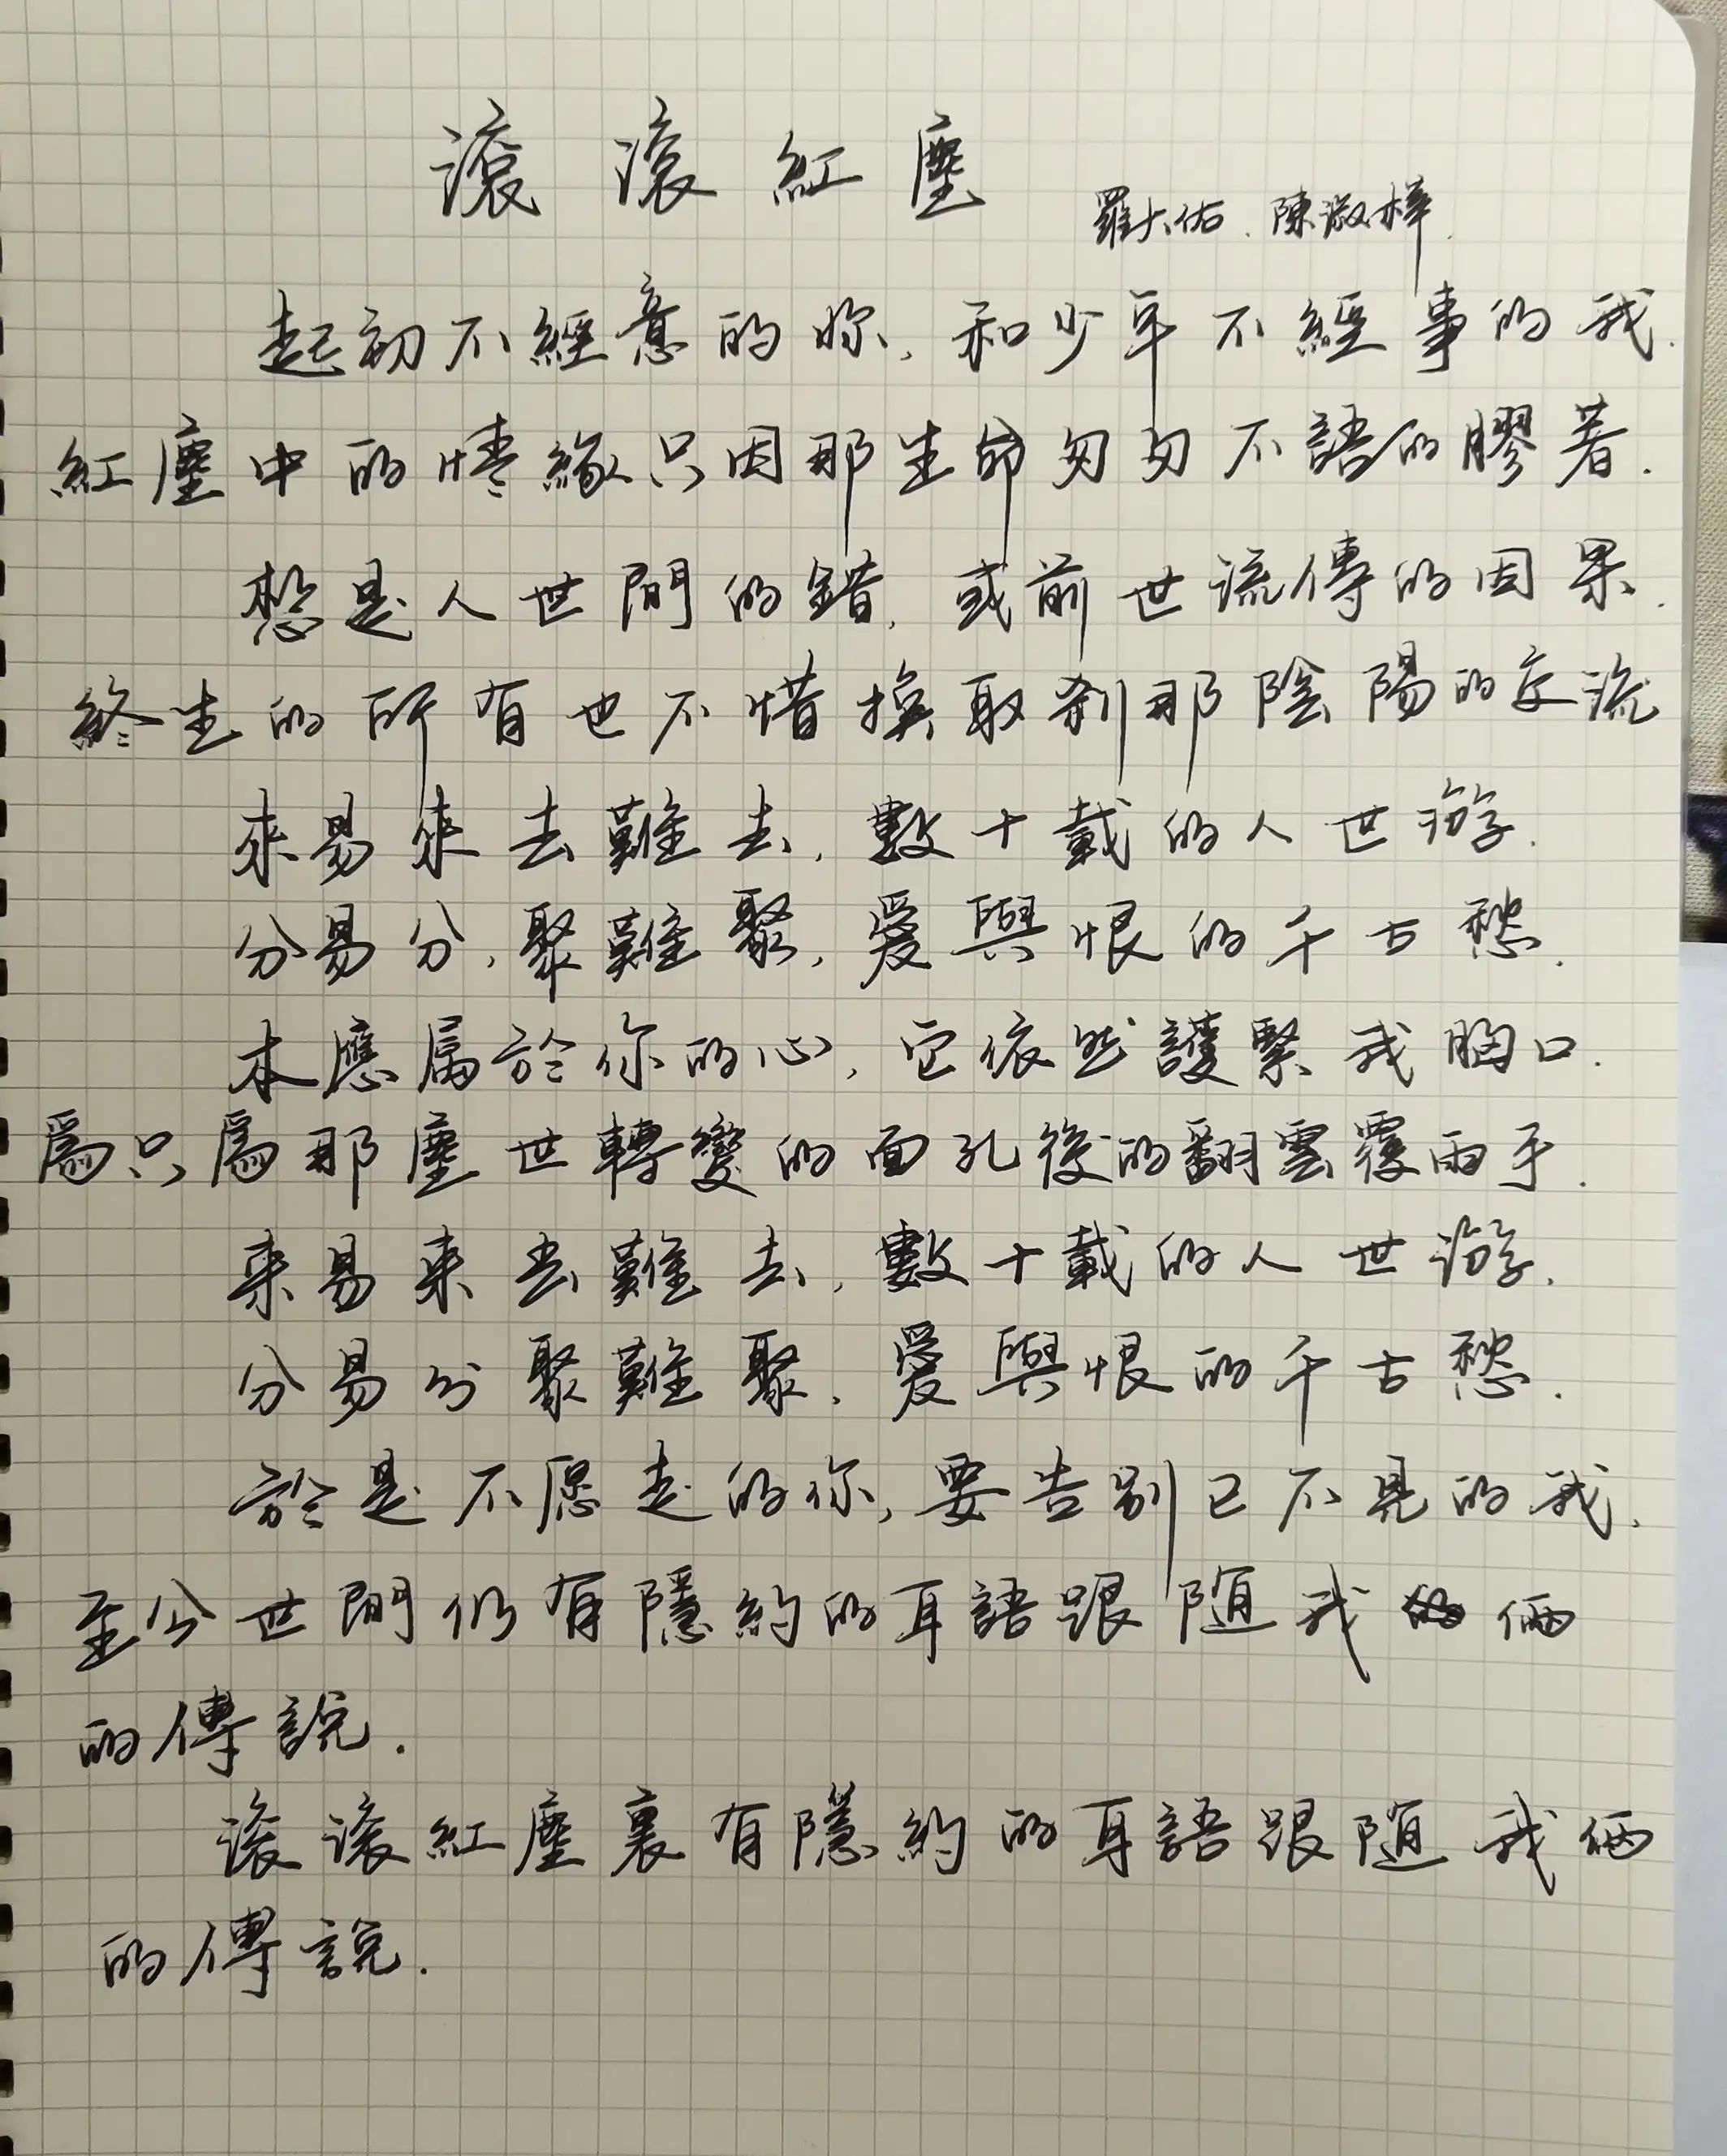 滾滾紅塵
羅大佑.陳淑樺.
起初不經意的妳,和少年不經事的我.
紅塵中的情緣只因那生命匆匆不語的膠着.
想是人世間的錯,或前世流傳的因果.
終生的所有也不惜換取剎那陰陽的交流
來易來去難去,數十載的人世游.
分易分,聚難聚,愛與恨的千古愁.
本應屬於你的心,它依然護緊我胸口.
為只為那塵世轉變的面孔後的翻雲覆雨手.
来易来去難去,數十載的人世游.
分易分聚難聚.愛與恨的千古愁.
於是不愿走的你,要告别已不見的我.
至今世間仍有隱約的耳語跟随我俩
的傳說.
滾滾紅塵裏有隱約的耳語跟随我俩
的傳說.